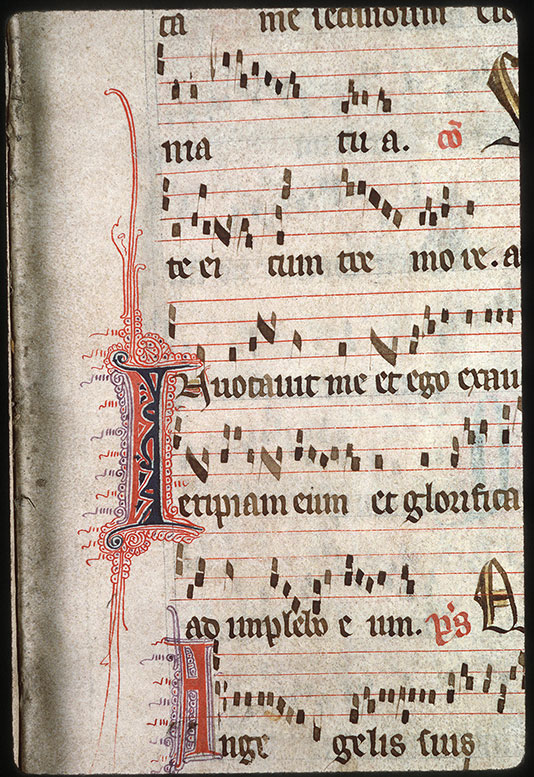 ca me secundum elo
nia tu a. cō
te ei cum tre mo re. a
Inuocauit me et ego exau
eripiam eum et glorifica
ad implebo e um. p̄s A
Inge gelis suis